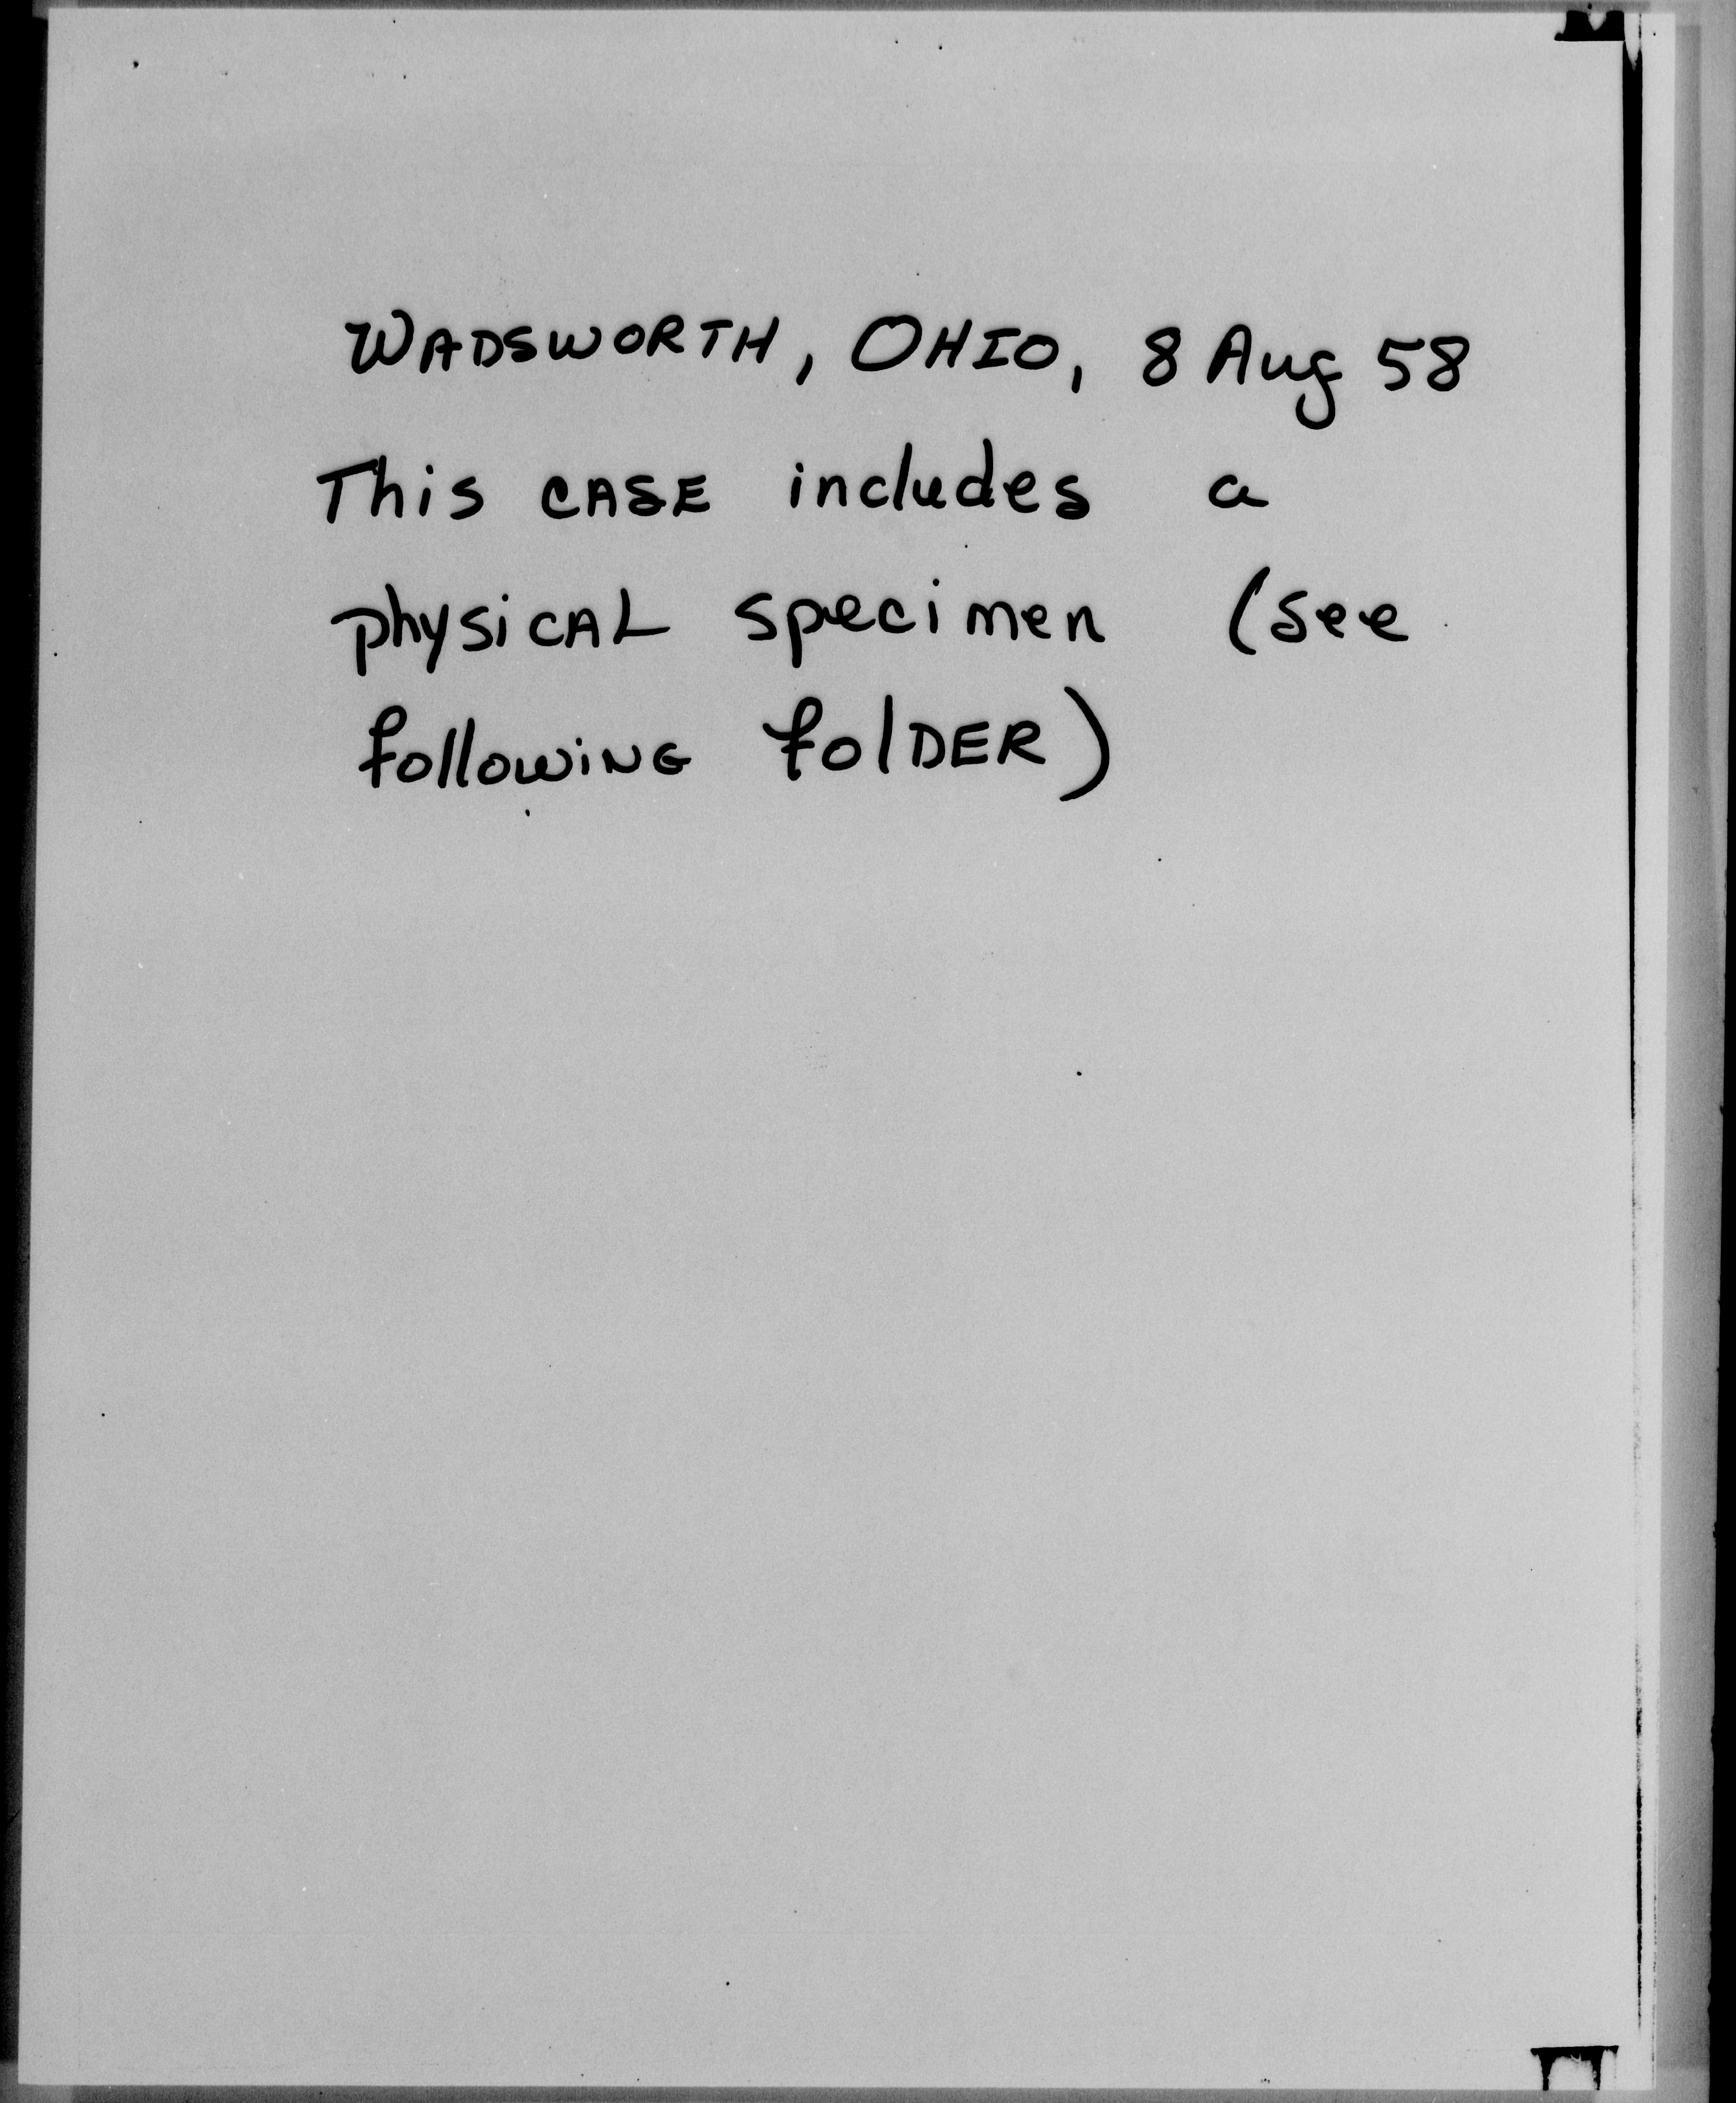 WADSWORTH, OHIO, 8 Aug 58
This CASE includes a
physicAL specimen (see
followiNG folDER)